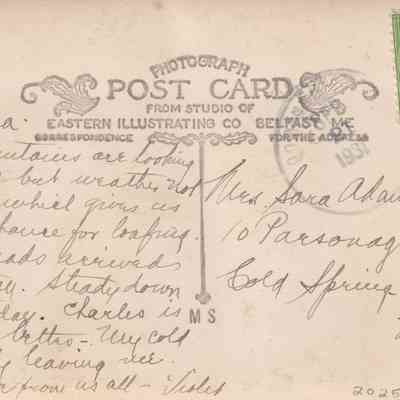 PHOTOGRAPH
POST CARD
FROM STUDIO OF
EASTERN ILLUSTRATING CO BELFAST ME
CORRESPONDENCE
FOR THE ADDRESS
a.
untains are looking
but weather not
which gives us
hance for loafing.
ads arrived
Steady down
day. Charles is
better - My cold
ly leaving me.
from us all - Violet
Mrs Sara Adam
10 Parsonag
Cold Spring
M S
1931
2025